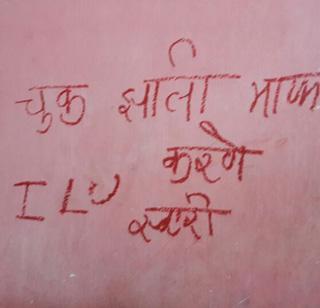 चुक झाली माफ
करणे
ILU
स्वारी